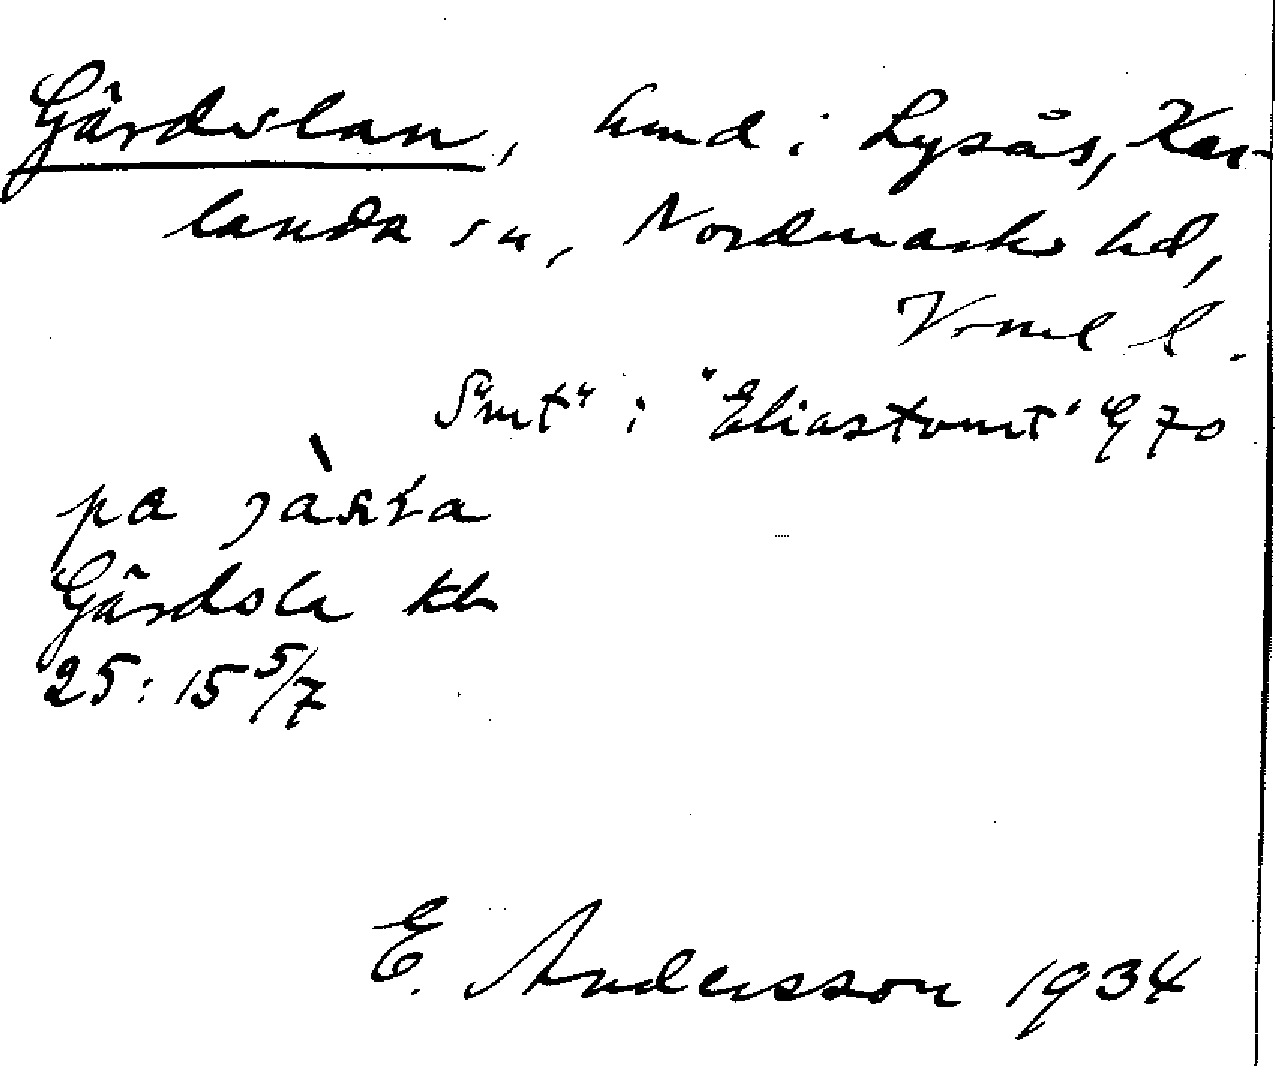 Gärdslan, hmd i Lysås, Kar-
landa sn, Nordmarks hd,
Vrml l.
Smt" i "Eliastomt" G 70
på
Gärdsla kb
25: 15 5/7
E. Andersson 1934